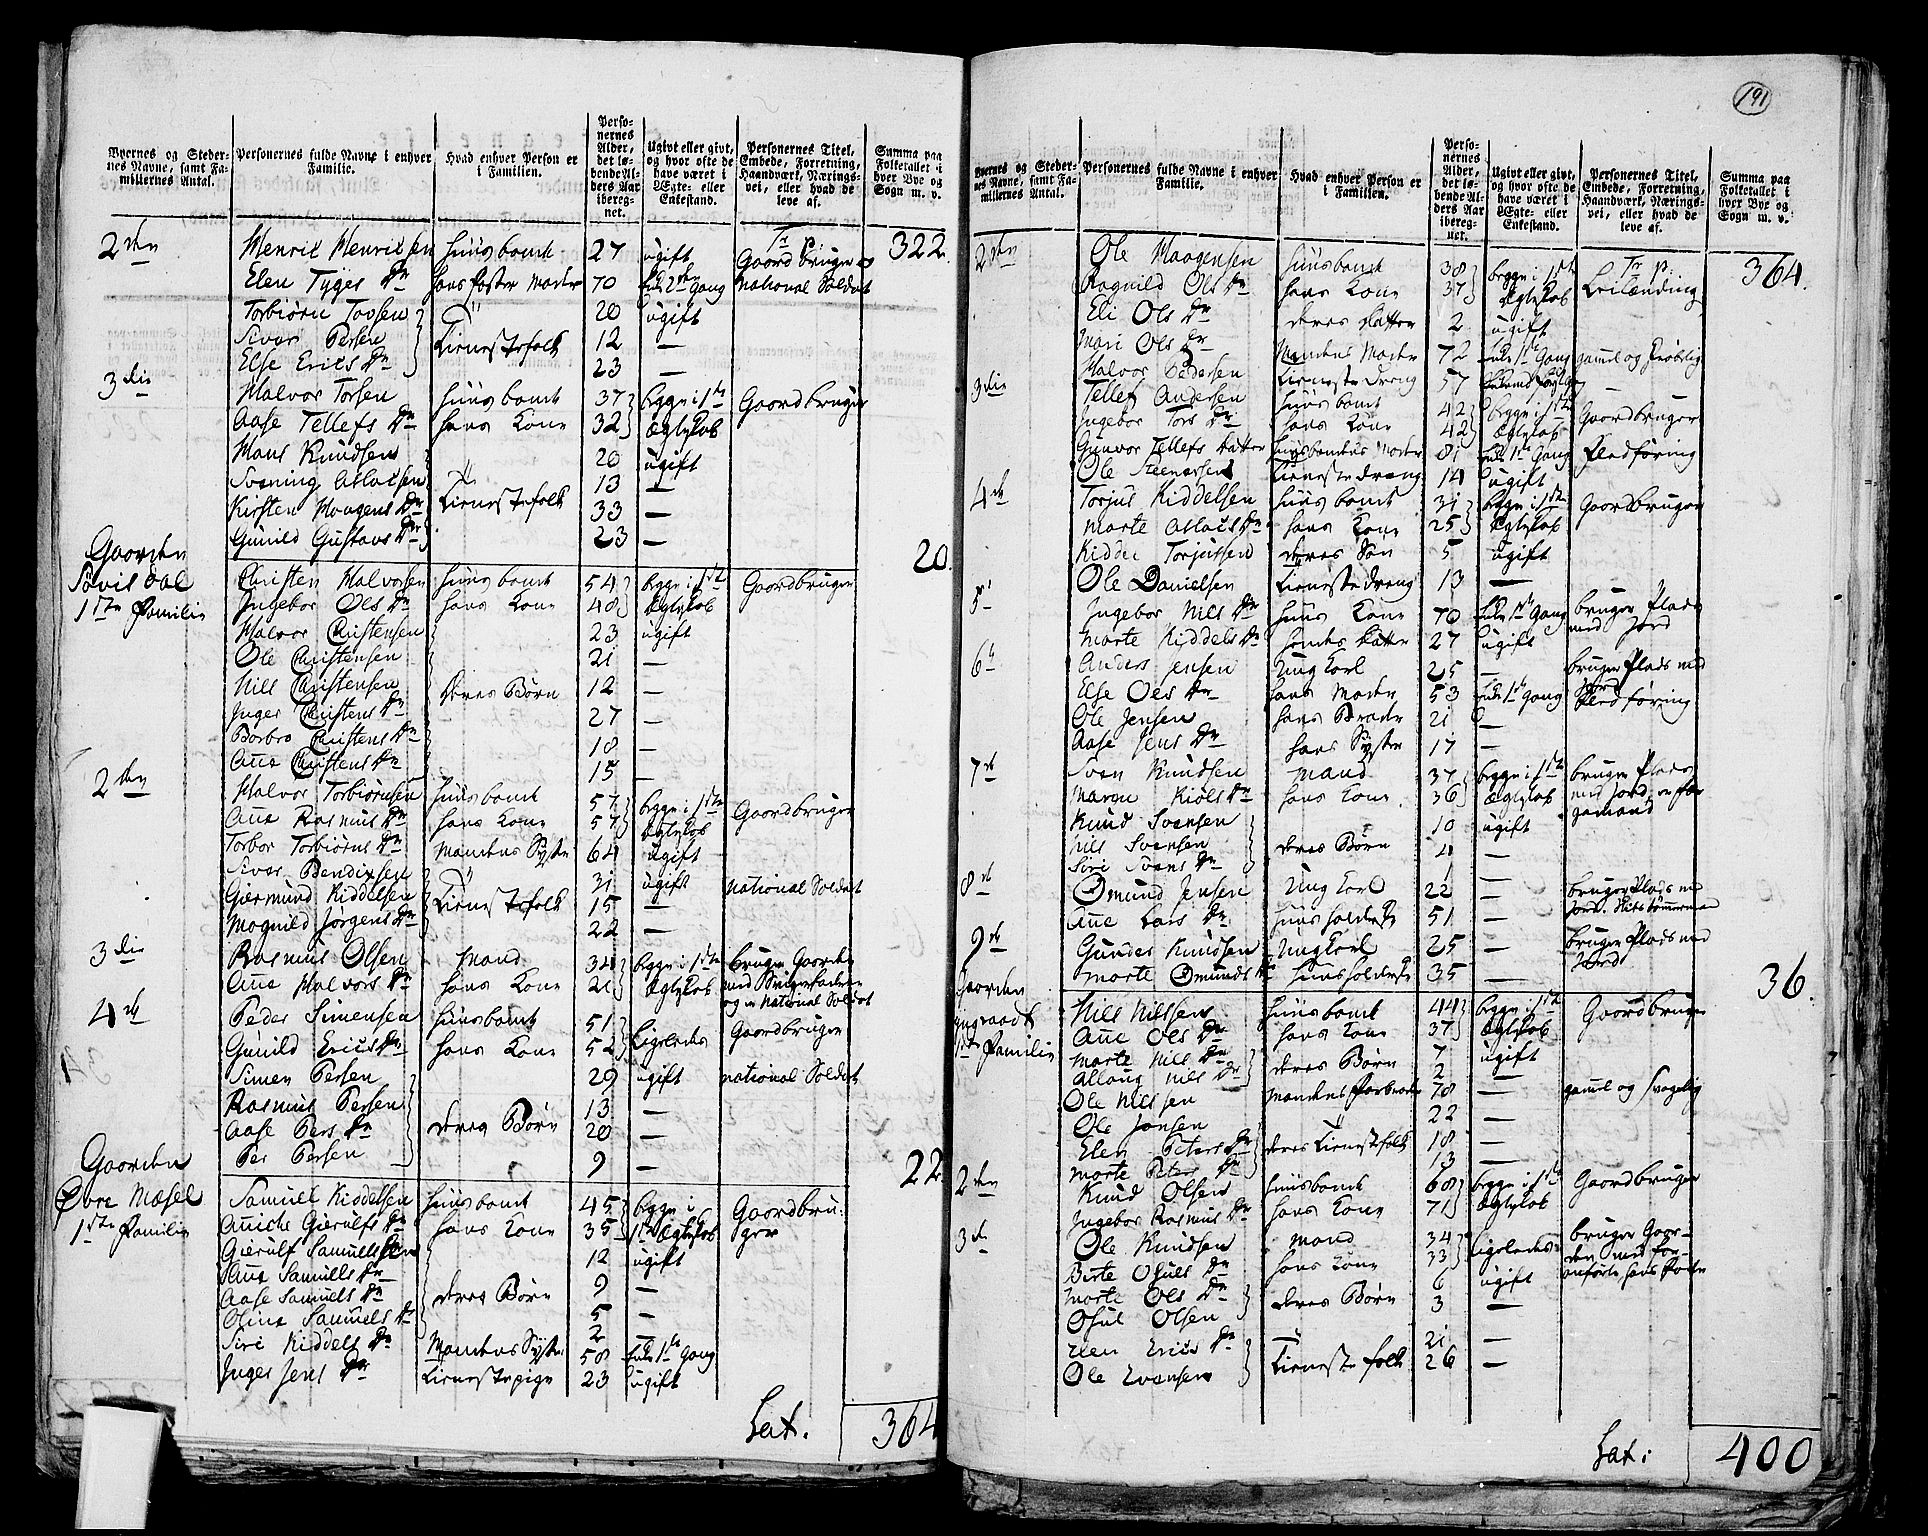 Byernes og Steder-
nes Navne, samt Fa-
milliernes Antal.
Personernes fulde Navne i enhver
Familie.
Hvad enhver Person er
i Familien.
Perso-
nernes
Alder,
det lø-
bende Al-
ders Aar
ibereg-
net.
Ugivt eller givt,
og hvor ofte de
have været i
Ægte- eller
Enkestand.
Personernes Titel,
Embede, Forretning,
Haandværk, Nærings-
vei, eller hvad de
leve af.
Summa paa
Folketallet i
hver Bye og
Sogn m. v.
Tr. p. 322
2den Henric Henricsen huusbond 27 ugift Gaardbruger og
Elen Tyges Dr hans foster Moder 70 Enke 2den Gang National Soldat
Torbiørn Tovsen 20 ugift
Sivor Persen Tienestefolk 12 —
Else Erics Dr 23 —
3die Halvor Torsen huusbond 37 begge i 1ste Gaardbruger
Aase Tellefs Dr hans Kone 32 Ægteskab
Hans Knudsen 20 ugift
Svening Aslacsen 13 —
Kirsten Maagens Dr Tienestefolk 33 —
Gunild Gustavs Dr 23 —
20.
Gaarden
Søvisdal Christen Halvorsen huusbond 54 begge i 1ste Gaardbruger
1ste Familie Ingebor Ols Dr hans Kone 48 Ægteskab
Halvor Christensen 23 ugift
Ole Christensen 21 —
Nils Christensen deres Børn 12 —
Inger Christens Dr 27 —
Borbro Christens Dr 18 —
Anne Christens Dr 15 —
2den Halvor Torbiørnsen huusbond 57 begge i 1ste Gaardbruger
Anne Rasmus Dr hans Kone 57 Ægteskab
Torbor Torbiørns Dr Mandens Syster 64 ugift
Sivor Bendixsen 31 ugift National Soldat
Giermund Kiddelsen Tienestefolk 15 —
Mognild Jørgens Dr 22 —
3die Rasmus Olsen Mand 34 begge i 1ste bruger Gaarden
Anne Halvors Dr hans Kone 21 Ægteskab med Svigerfaderen
og er National Soldat
4de Peder Simensen huusbond 51 Ligeledes Gaardbruger
Gunild Erics Dr hans Kone 52
Simen Persen 29 ugift National Soldat
Rasmus Persen 13 —
Aase Pers Dr deres Børn 20 —
Per Persen 9 —
22
Gaarden
Øvre Mæsel Samuel Kiddelsen huusbond 45 begge i Gaardbru-
1ste Familie Anniche Gierulfs Dr hans Kone 35 1ste Ægteskab ger
Gierulf Samuelssen 12 ugift
Anne Samuels Dr 9 —
Aase Samuels Dr deres Børn 5 —
Olina Samuels Dr 2 —
Siri Kiddels Dr Mandens Syster 58 Enke 1ste Gang
Inger Jens Dr Tienestepige 23 ugift
Lat. 364
191
Byernes og Steder-
nes Navne, samt Fa-
milliernes Antal.
Personernes fulde Navne i enhver
Familie.
Hvad enhver Person er
i Familien.
Perso-
nernes
Alder,
det lø-
bende Al-
ders Aar
ibereg-
net.
Ugivt eller givt,
og hvor ofte de
have været i
Ægte- eller
Enkestand.
Personernes Titel,
Embede, Forretning,
Haandværk, Nærings-
vei, eller hvad de
leve af.
Summa paa
Folketallet i
hver Bye og
Sogn m. v.
Tr. p. 364.
2den Ole Maagensen huusbond 38 begge i 1ste Leilænding
Ragnild Ols Dr hans Kone 37 Ægteskab
Eli Ols Dr deres Datter 2 ugift
Mari Ols Dr Mandens Moder 72 Enke 1ste Gang gammel og
Halvor Pedersen Tienestedreng 57 —
3die Tellef Andersen huusbond 42 begge i 1ste Gaardbruger
Ingebor Tors Dr hans Kone 42 Ægteskab
Gunvor Tellefs Datter huusbondens Moder 81 Enke 1ste Gang Flødføring
Ole Steenersen Tienestedreng 14 ugift
4de Torjus Kiddelsen huusbond 31 begge i 1ste Gaardbruger
Marte Aslacs Dr hans Kone 25 Ægteskab
Kiddel Torjussen deres Søn 5 ugift
Ole Danielsen Tienestedreng 13 —
5t Ingebor Nils Dr huus Kone 70 Enke 1ste Gang bruger Plads
Marte Kiddels Dr hendes Datter 27 ugift med Jord
6t Anders Jensen Ung Karl 25 — bruger Plads med
Jord
Else Ols Dr hans Moder 53 Enke 1ste Gang Flødføring
Ole Jensen hans Broder 21 —
Aase Jens Dr hans Syster 17 —
7de Sven Knudsen Mand 37 begge i 1ste bruger Plads
Maren Kiøls Dr hans Kone 36 Ægteskab med Jord, er
Knud Svensen 10 ugift
Nils Svensen deres Børn 4 —
Siri Svens Dr 1 —
8de Omund Jensen Ung Karl 22 — bruger Plads med
Anne Lars Dr huusholderske 51 — Jord.
9de Gunder Knudsen Ung Karl 25 — bruger Plads med
Marte Omunds Dr huusholderske 35 — Jord
36.
Gaarden
1ste Familie Nils Nilssen huusbond 44 begge i 1ste Gaardbruger
Anne Ols Dr hans Kone 37 Ægteskab
Marte Nils Dr deres Børn 7 ugift
Allaug Nils Dr 2 —
Ole Nilssen Mandens Farbroder 78 — gammel og svagelig
Ole Jonsen 22 —
Elen Peters Dr deres Tienestefolk 18 —
Marte Peters Dr 13 —
2den Knud Olsen huusbond 68 begge i 1ste Gaardbruger
Ingebor Rasmus Dr hans Kone 71 Ægteskab
3die Ole Knudsen Mand 34 Ligeledes bruger Gaar-
Birte Osuls Dr hans Kone 33 den med for-
Marte Ols Dr deres Børn 6 ugift anførte hans Fader
Osul Olsen 3 —
Elen Erics Dr Tienestefolk 21 —
Ole Evensen 26 —
Lat: 400